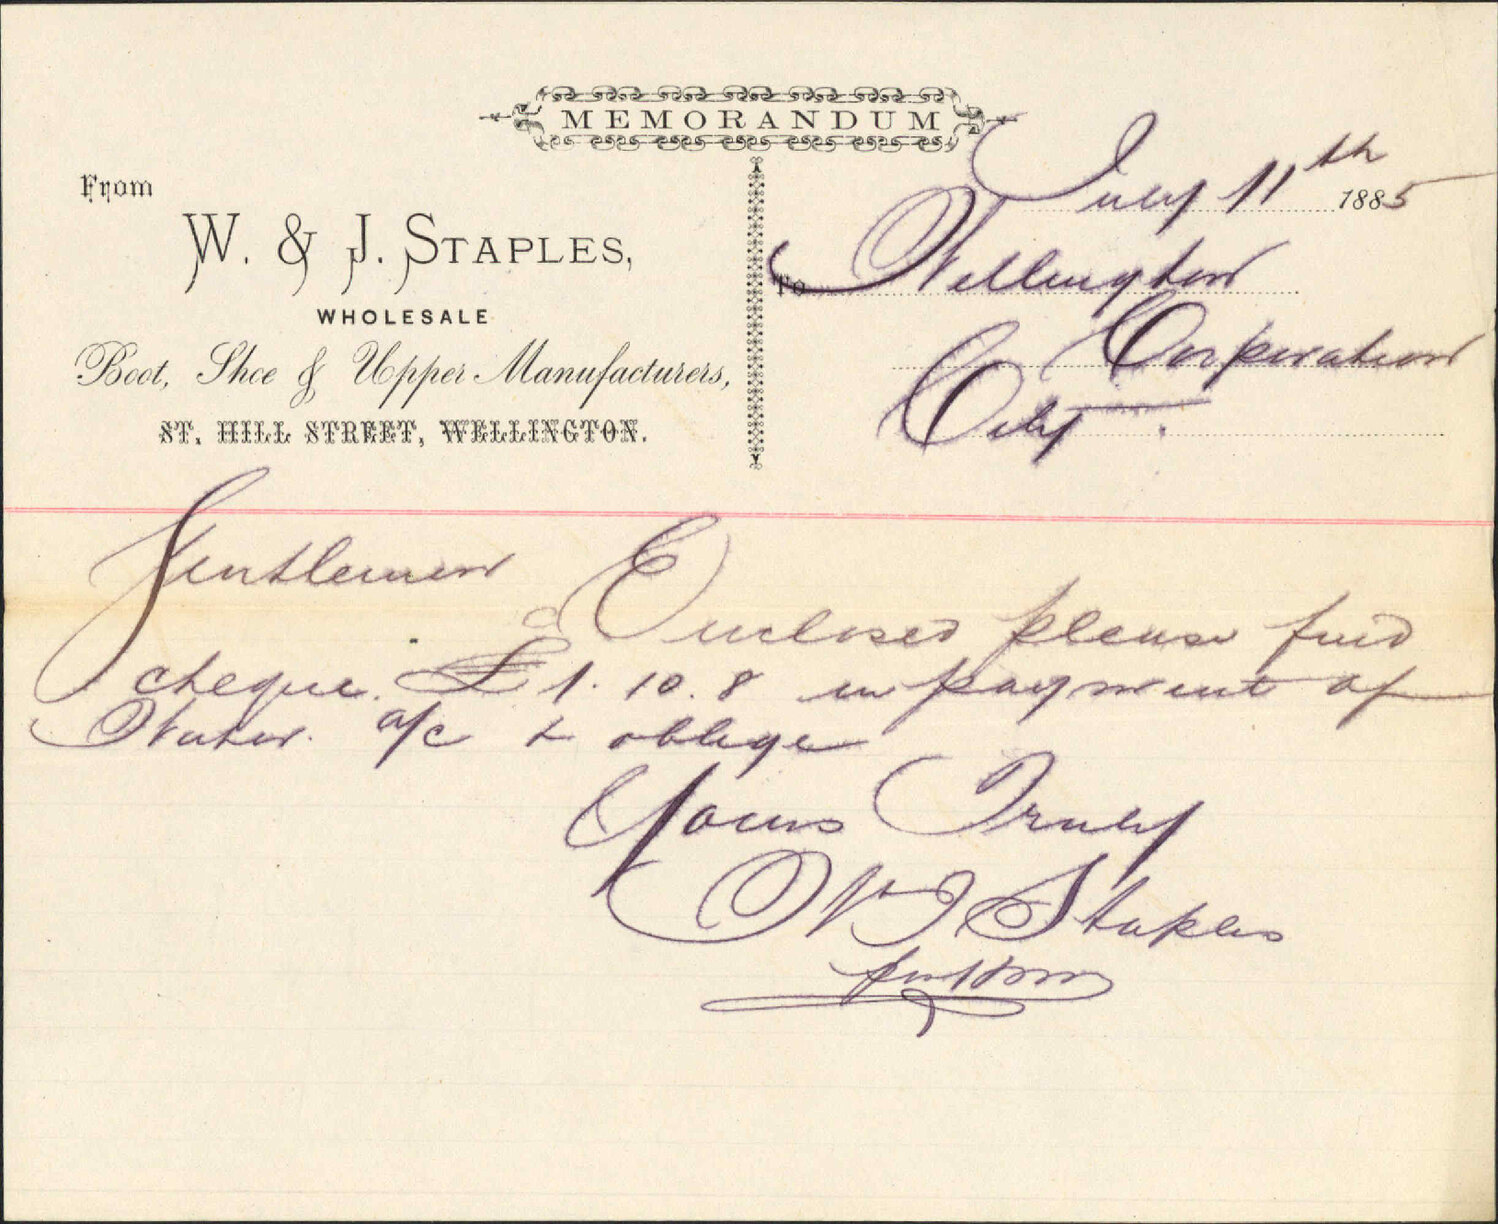 MEMORANDUM
July 11th 1885
From
W. & J. STAPLES,
WHOLESALE
Boot, Shoe & Upper Manufacturers,
ST. HILL STREET, WELLINGTON.
To Wellington
Corporation
City.
Gentlemen
Enclosed please find
cheque. £1.10.8 in payment of
Water a/c & oblige
Yours Truly
W J Staples